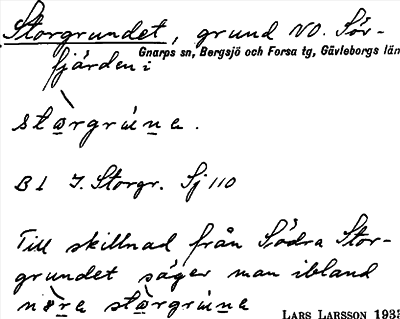 Storgrundet, grund NO. Sör-
Gnarps sn, Bergsjö och Forsa tg, Gävleborgs län
fjärden i
stòrgrúna.
B 1 J. Storgr. Sj 110
Till skillnad från Södra Stor-
grundet säger man ibland
stòrgrúna
LARS LARSSON 1935